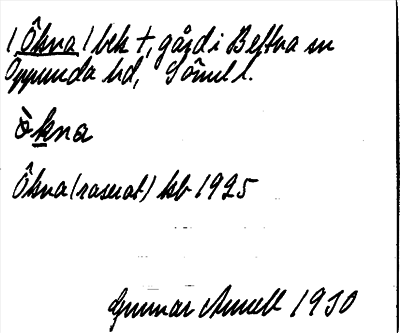 /Ökna/ bek †, gård i Bettna sn
Oppunda hd, Söml l.
ò̈kna
Ökna (raserat) kb 1925
Gunnar Amell 1930